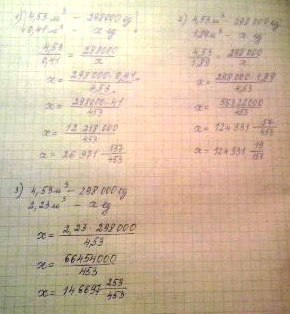 1) 4,53 м³ – 298000 ед
0,41 м³ – x ед
4,53/0,41 = 298000/x
x = 298000·0,41/4,53
x = 298000·41/453
x = 12 218 000/453
x = 26 971 137/453
2) 4,53 м³ – 298 000 ед
1,89 м³ – x ед
4,53/1,89 = 298 000/x
x = 298 000·1,89/4,53
x = 56322000/453
x = 124 331 57/453
x = 124 331 19/151
3) 4,53 м³ – 298 000 ед
2,23 м³ – x ед
x = 2,23·298 000/4,53
x = 66454000/453
x = 146697 259/453